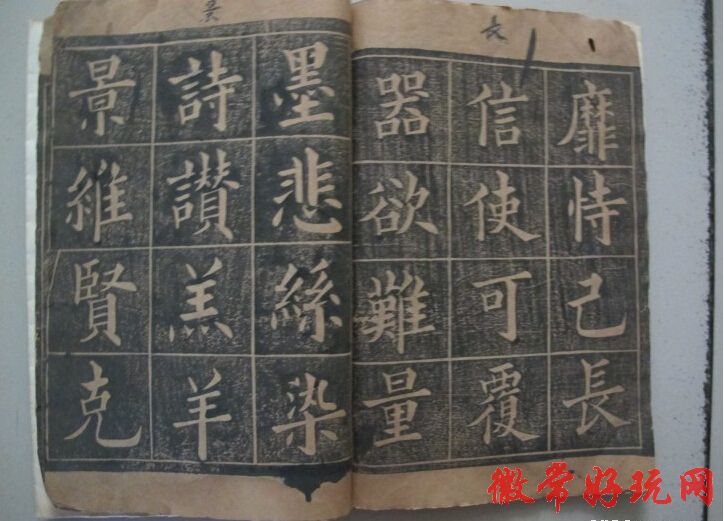 靡恃己長
信使可覆
器欲難量
墨悲絲染
詩讃羔羊
景維賢克
徽常好玩网